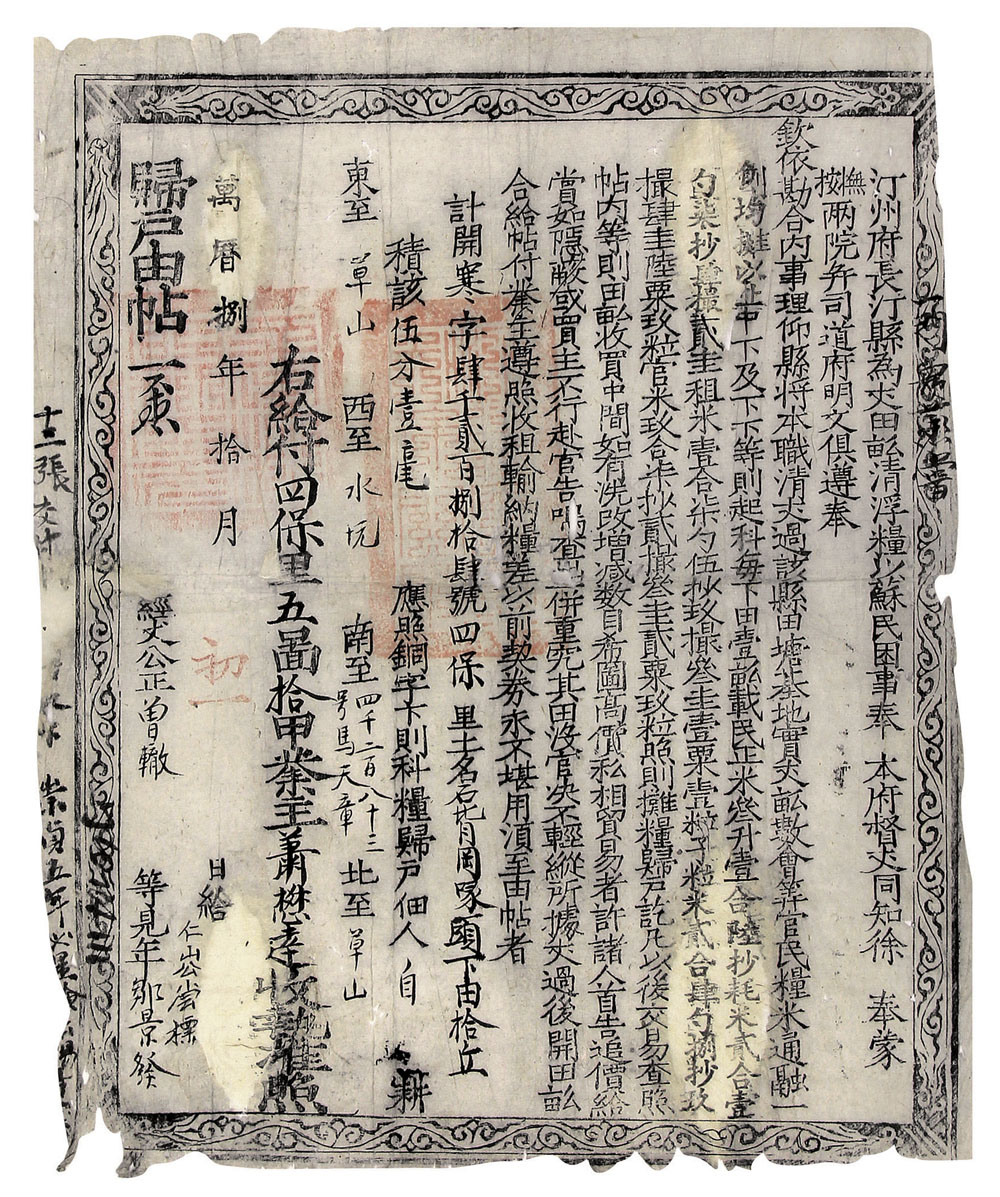 汀州府長汀縣為丈田畝清浮糧以蘇民困事奉 本府督丈同知徐 奉蒙
撫按兩院并司道府明文俱遵奉
欽依勘合內事理仰縣將本職清丈過該縣田塘基地實丈畝數會等官民糧米通融一
則均攤以上中下及下下等則起科每下田壹畝載民正米叁升壹合陸抄耗米貳合壹
勺柒抄 貳圭租米壹合柒勺伍抄玖撮叁圭壹粟壹粒子粒米貳合肆勺捌抄玖
撮肆圭陸粟玖粒官米玖合柒抄貳撮叁圭貳粟玖粒照則攤糧歸戶訖凡以後交易查照
帖內等則田畝收買中間如有洗改增減数目希圖高價私相貿易者許諸人首告追價給
賞如隱蔽或買主不行赴官告 查出併重究其田沒官决不輕縱所據丈過後開田畝
合給帖付業主遵照收租輸納糧差以前契券永不堪用湏至由帖者
計開寒字肆千貳百捌拾肆號四保 里土名 背岡啄頭下由拾丘
積該伍分壹厘 應照銅字下則科糧歸戶佃人 自 耕
東至 草山 西至 水坑 南至四千二百八十三号馬天章 北至 草山
右給付四保里五啚拾甲業主蕭懋達收執准照
萬曆捌年拾月 初一 日給 仁山公當標
經丈公正曾轍 等見年鄒景發
歸戶由帖 一張
十二張
崇禎五年